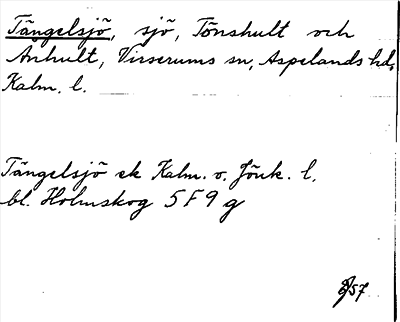 Tängelsjö, sjö, Tönshult och
Anhult, Virserums sn, Aspelands hd,
Kalm. l.
Tängelsjö ek Kalm. o. Jönk. l.
bl. Holmskog 5 F 9 g
57